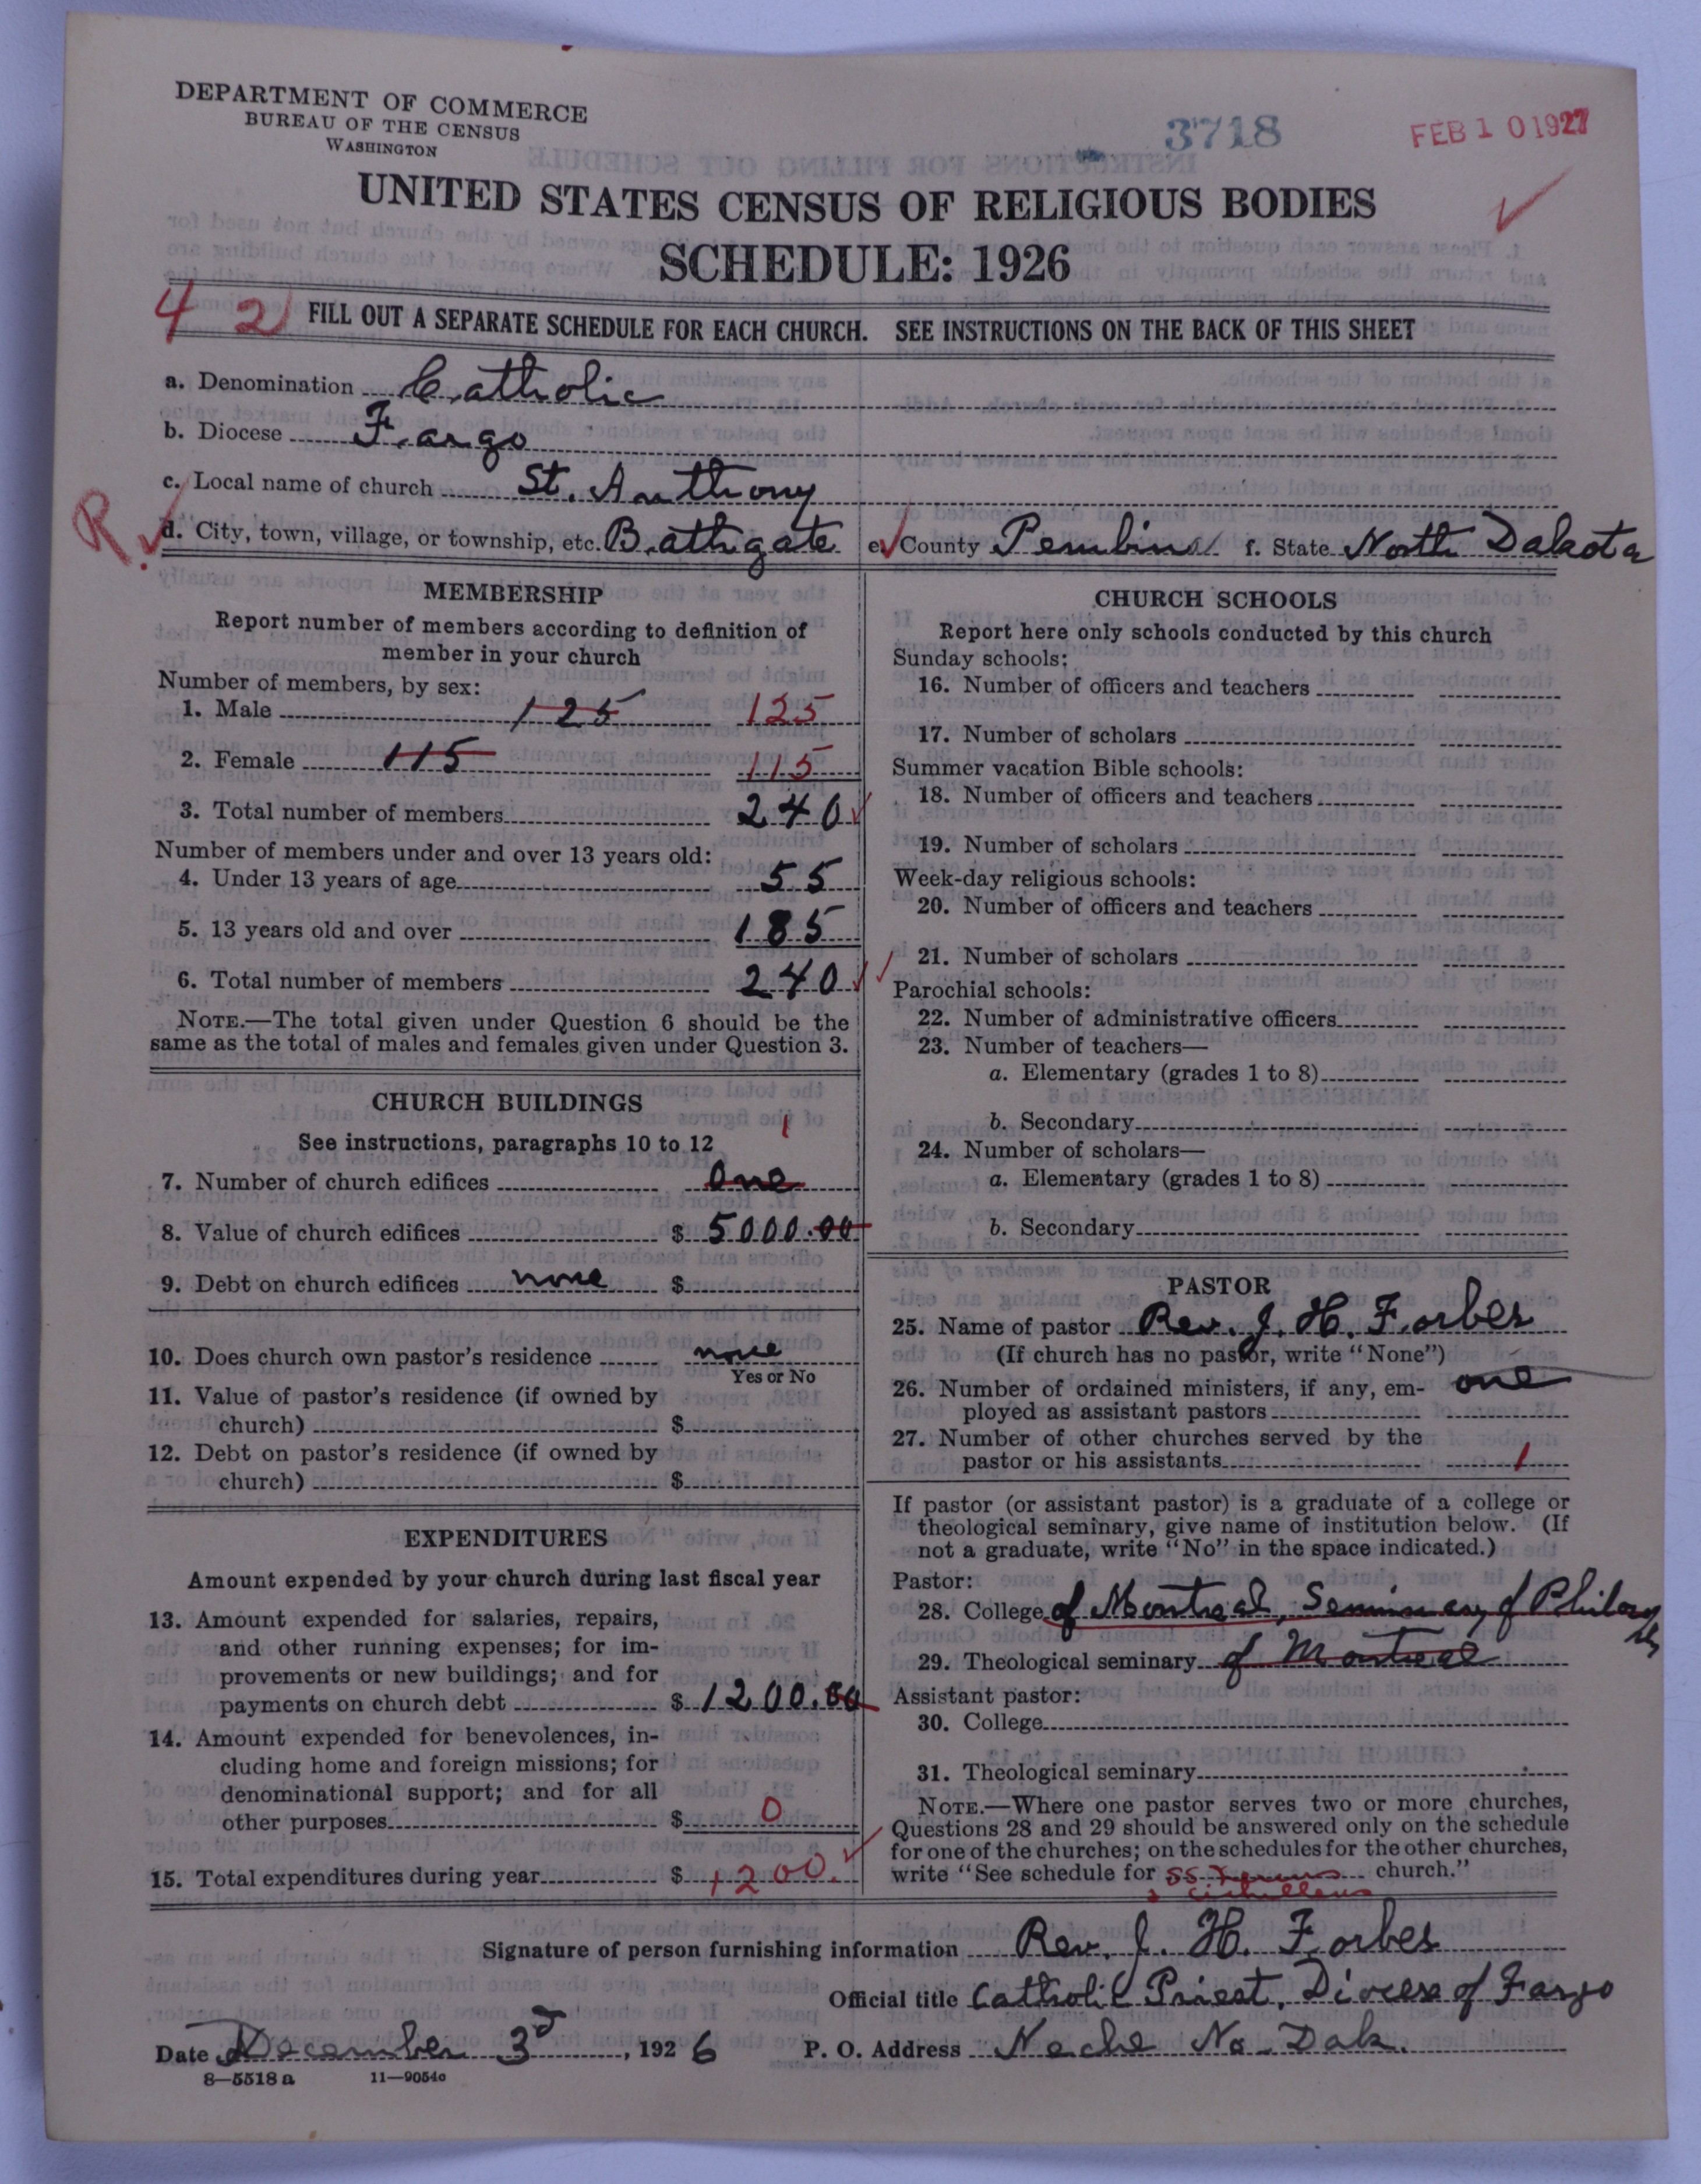 DEPARTMENT OF COMMERCE
BUREAU OF THE CENSUS
WASHINGTON
3718
FEB 10 1927
UNITED STATES CENSUS OF RELIGIOUS BODIES
SCHEDULE: 1926
4 2
FILL OUT A SEPARATE SCHEDULE FOR EACH CHURCH. SEE INSTRUCTIONS ON THE BACK OF THIS SHEET
a. Denomination Catholic
b. Diocese Fargo
c. Local name of church St. Anthony
R.
d. City, town, village, or township, etc. Bathgate e. County Pembina f. State North Dakota
MEMBERSHIP
Report number of members according to definition of
member in your church
Number of members, by sex:
1. Male 125 125
2. Female 115 115
3. Total number of members 240
Number of members under and over 13 years old:
4. Under 13 years of age 55
5. 13 years old and over 185
6. Total number of members 240
NOTE.—The total given under Question 6 should be the
same as the total of males and females given under Question 3.
CHURCH BUILDINGS
See instructions, paragraphs 10 to 12
1
7. Number of church edifices One
8. Value of church edifices $ 5000.00
9. Debt on church edifices none $
10. Does church own pastor's residence none
Yes or No
11. Value of pastor's residence (if owned by
church) $
12. Debt on pastor's residence (if owned by
church) $
EXPENDITURES
Amount expended by your church during last fiscal year
13. Amount expended for salaries, repairs,
and other running expenses; for im-
provements or new buildings; and for
payments on church debt $ 1200.00
14. Amount expended for benevolences, in-
cluding home and foreign missions; for
denominational support; and for all
other purposes $ 0
15. Total expenditures during year $ 1200.
CHURCH SCHOOLS
Report here only schools conducted by this church
Sunday schools:
16. Number of officers and teachers
17. Number of scholars
Summer vacation Bible schools:
18. Number of officers and teachers
19. Number of scholars
Week-day religious schools:
20. Number of officers and teachers
21. Number of scholars
Parochial schools:
22. Number of administrative officers
23. Number of teachers—
a. Elementary (grades 1 to 8)
b. Secondary
24. Number of scholars—
a. Elementary (grades 1 to 8)
b. Secondary
PASTOR
25. Name of pastor Rev. J. H. Forbes
(If church has no pastor, write "None")
26. Number of ordained ministers, if any, em- one
ployed as assistant pastors
27. Number of other churches served by the
pastor or his assistants 1
If pastor (or assistant pastor) is a graduate of a college or
theological seminary, give name of institution below. (If
not a graduate, write "No" in the space indicated.)
Pastor:
28. College of Montreal, Seminary of Philosophy
29. Theological seminary of Montreal
Assistant pastor:
30. College
31. Theological seminary
NOTE.—Where one pastor serves two or more churches,
Questions 28 and 29 should be answered only on the schedule
for one of the churches; on the schedules for the other churches,
write "See schedule for SS church."
Signature of person furnishing information Rev. J. H. Forbes
Official title Catholic Priest, Diocese of Fargo
Date December 3d, 1926 P. O. Address Neche No. Dak.
8—5518 a 11—9054a